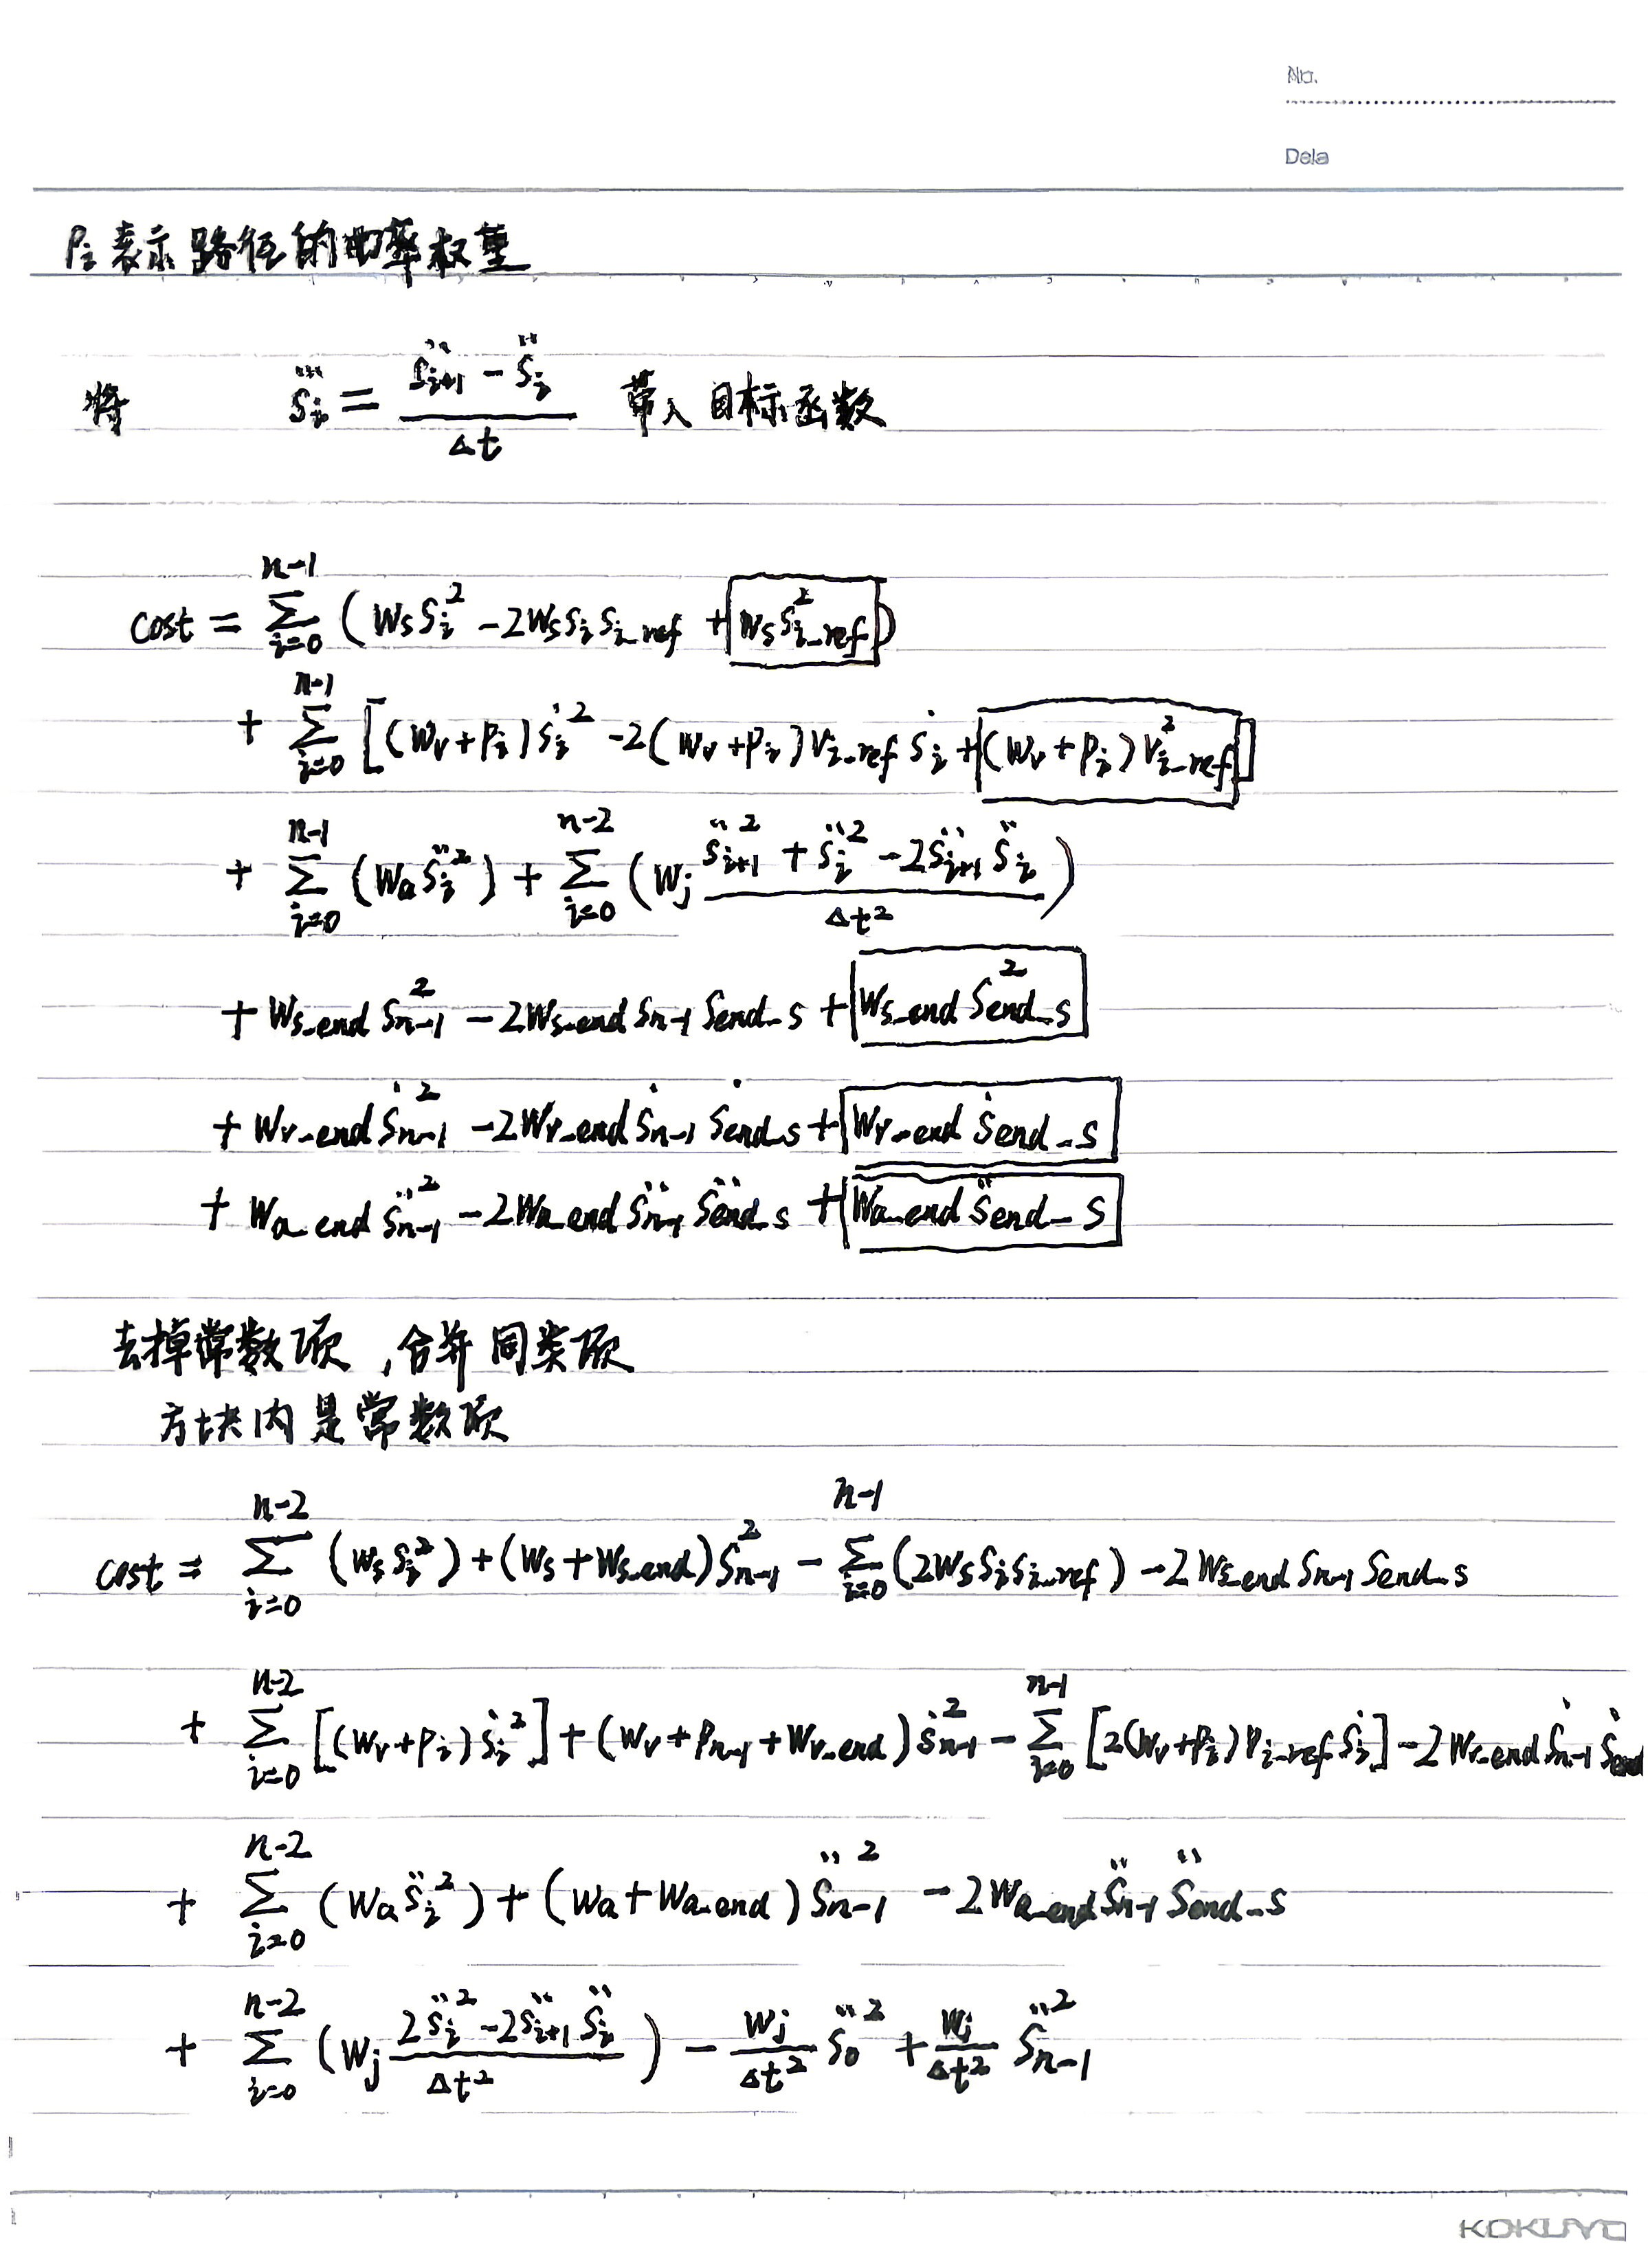 No.
Date
Pᵢ表示路径的曲率权重
将 s⃛ᵢ = (s̈ᵢ₊₁ - s̈ᵢ)/Δt 带入目标函数
cost = Σ_{i=0}^{n-1} (wₛsᵢ² - 2wₛsᵢs_{i_ref} + wₛs²_{i_ref})
+ Σ_{i=0}^{n-1} [(wᵥ+pᵢ)ṡᵢ² - 2(wᵥ+pᵢ)v_{i_ref}ṡᵢ + (wᵥ+pᵢ)v²_{i_ref}]
+ Σ_{i=0}^{n-1} (wₐs̈ᵢ²) + Σ_{i=0}^{n-2} (wⱼ (s̈ᵢ₊₁² + s̈ᵢ² - 2s̈ᵢ₊₁s̈ᵢ)/Δt²)
+ w_{s_end}s²_{n-1} - 2w_{s_end}s_{n-1}s_{end_s} + w_{s_end}s²_{end_s}
+ w_{v_end}ṡ²_{n-1} - 2w_{v_end}ṡ_{n-1}ṡ_{end_s} + w_{v_end}ṡ_{end_s}
+ w_{a_end}s̈²_{n-1} - 2w_{a_end}s̈_{n-1}s̈_{end_s} + w_{a_end}s̈_{end_s}
去掉常数项,合并同类项
方块内是常数项
cost = Σ_{i=0}^{n-2} (wₛsᵢ²) + (wₛ+w_{s_end})s²_{n-1} - Σ_{i=0}^{n-1} (2wₛsᵢs_{i_ref}) - 2w_{s_end}s_{n-1}s_{end_s}
+ Σ_{i=0}^{n-2} [(wᵥ+pᵢ)ṡᵢ²] + (wᵥ+p_{n-1}+w_{v_end})ṡ²_{n-1} - Σ_{i=0}^{n-1} [2(wᵥ+pᵢ)v_{i_ref}ṡᵢ] - 2w_{v_end}ṡ_{n-1}ṡ_{end}
+ Σ_{i=0}^{n-2} (wₐs̈ᵢ²) + (wₐ+w_{a_end})s̈²_{n-1} - 2w_{a_end}s̈_{n-1}s̈_{end_s}
+ Σ_{i=0}^{n-2} (wⱼ (2s̈ᵢ² - 2s̈ᵢ₊₁s̈ᵢ)/Δt²) - (wⱼ/Δt²) s̈₀² + (wⱼ/Δt²) s̈²_{n-1}
KOKUYO